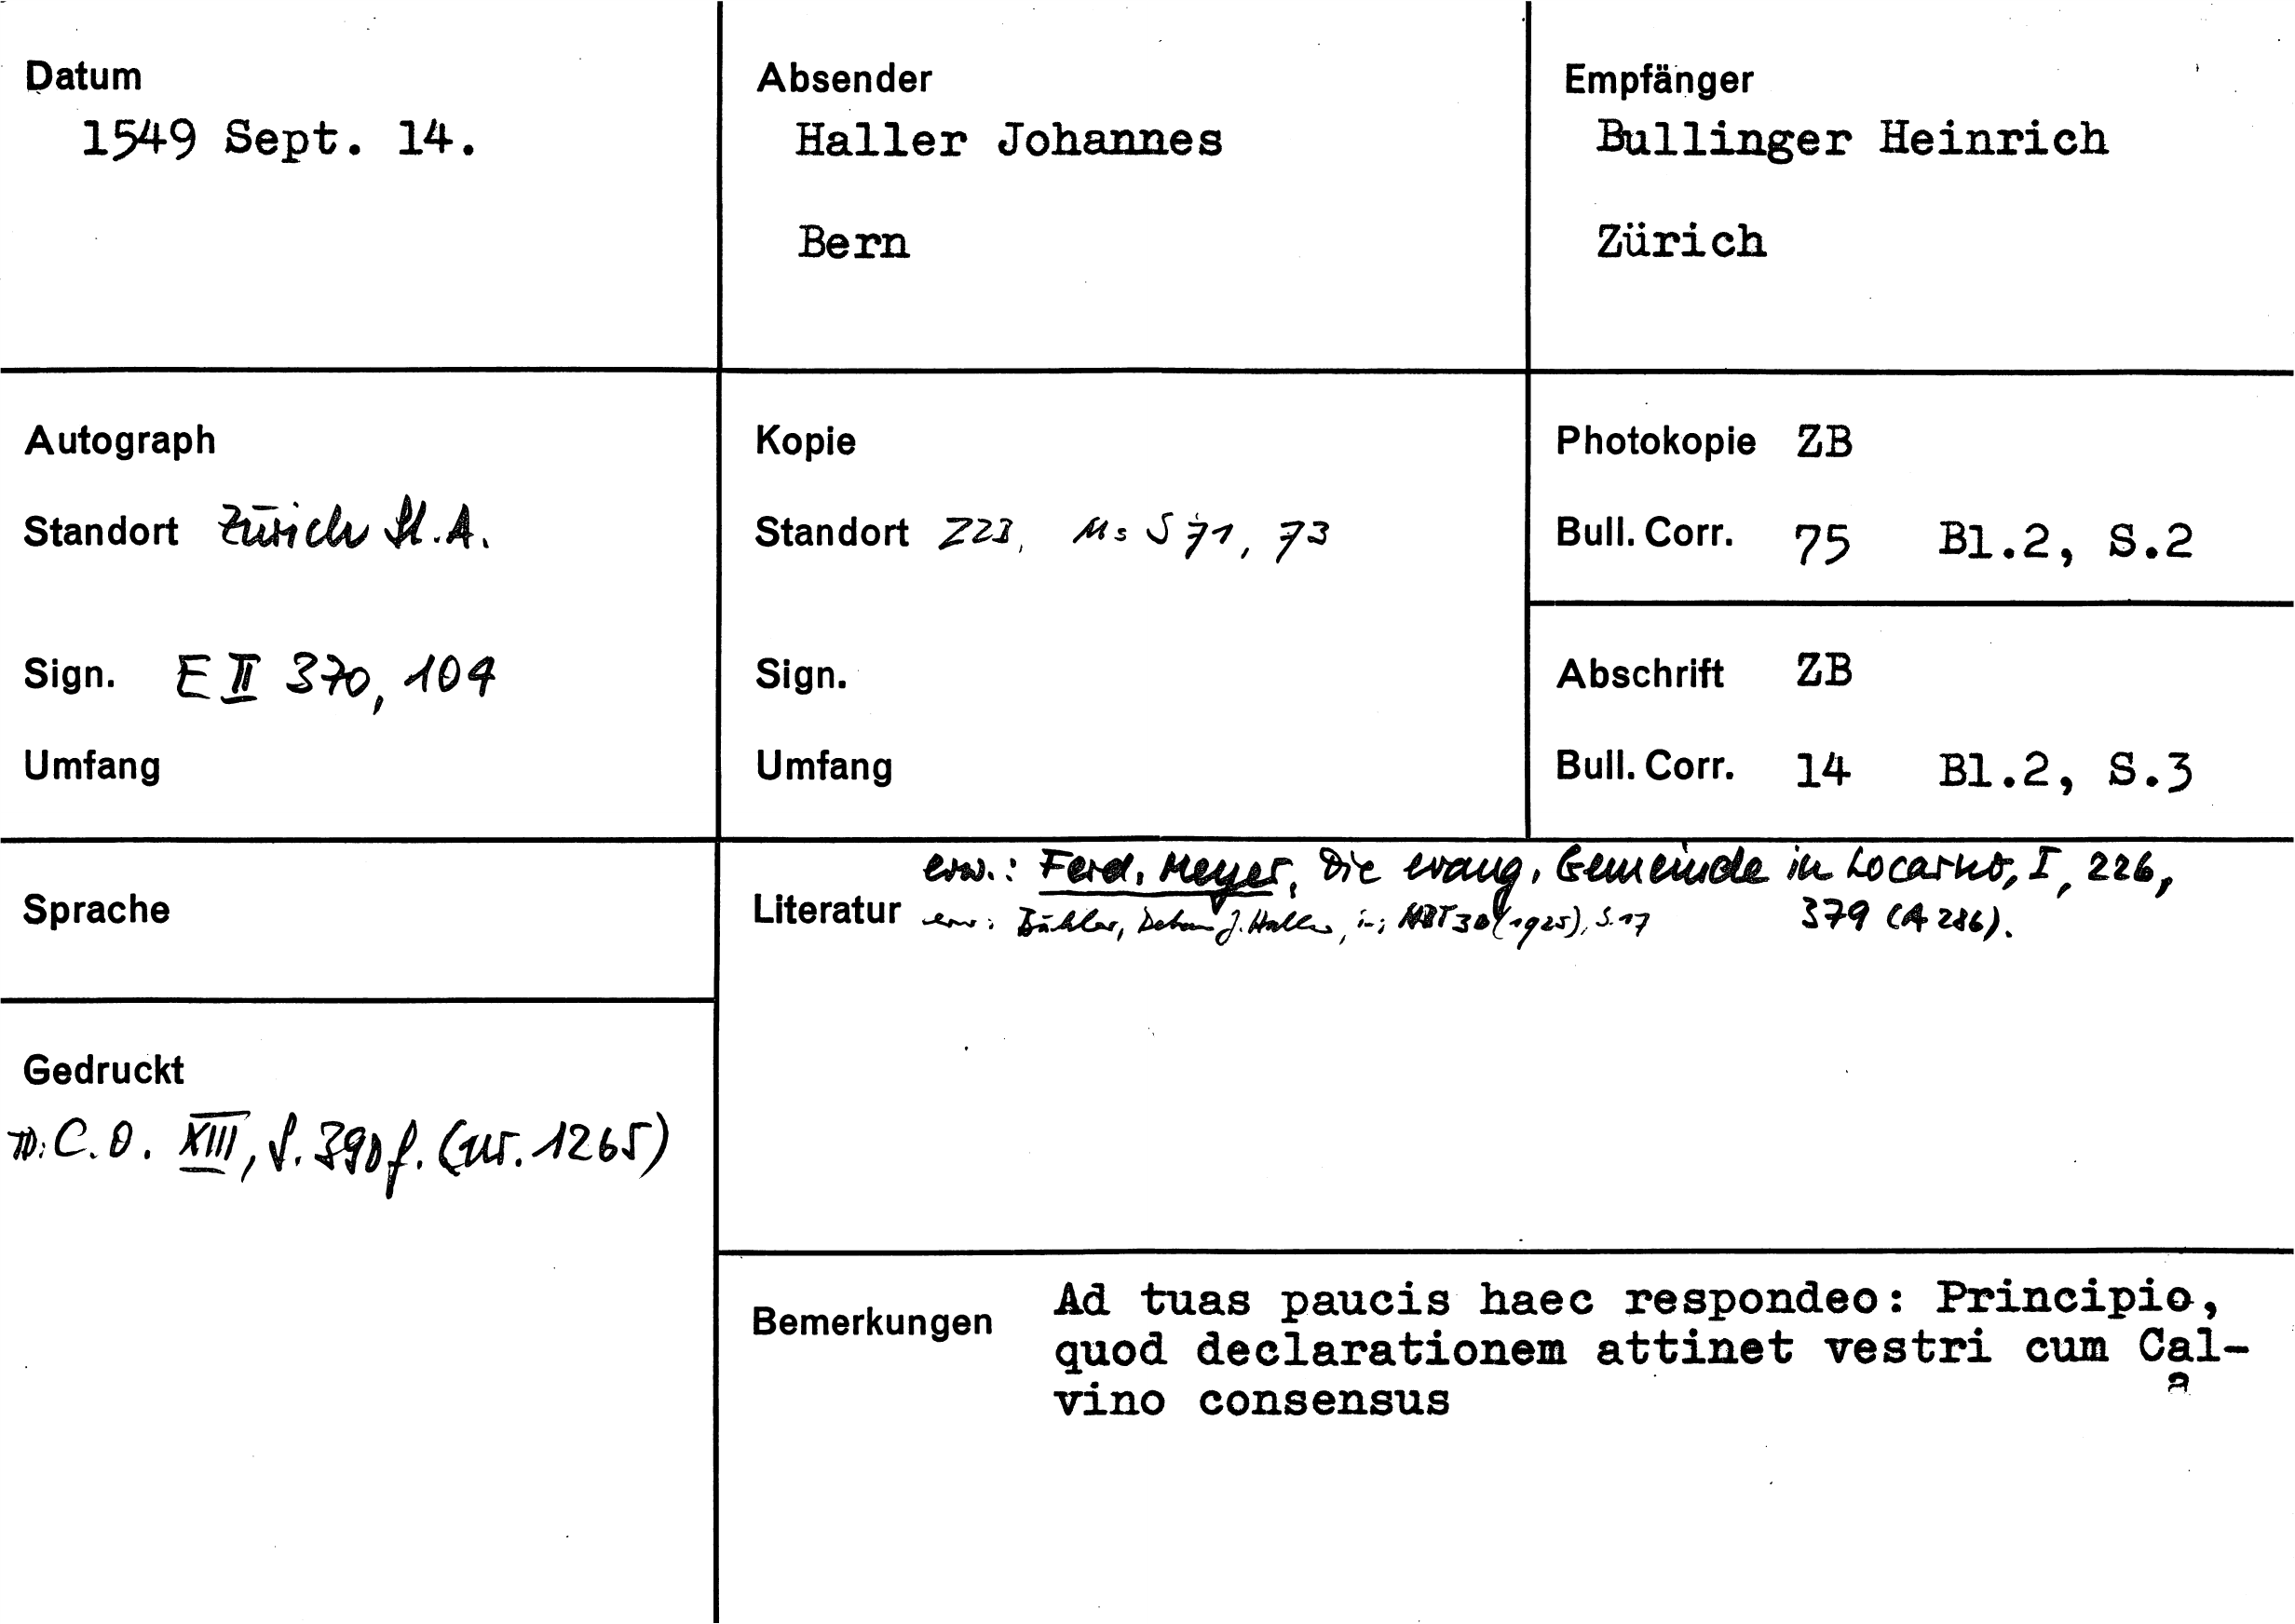 Datum
1549 Sept. 14.
Absender
Haller Johannes
Bern
Empfänger
Bullinger Heinrich
Zürich
Autograph
Standort Zürich St.A.
Sign. E II 370, 104
Umfang
Kopie
Standort ZZB, Ms S 71, 73
Sign.
Umfang
Photokopie ZB
Bull. Corr. 75 Bl.2, S.2
Abschrift ZB
Bull. Corr. 14 Bl.2, S.3
Sprache
Gedruckt
C.O. XIII, S. 390 f. (nr. 1265)
erw.: Ferd. Meyer, Die evang. Gemeinde in Locarno, I, 226,
379 (A 286).
Literatur erw: Bähler, Dekan J. Haller, in: NBT 30 (1925), S. 17
Bemerkungen Ad tuas paucis haec respondeo: Principio,
quod declarationem attinet vestri cum Cal-
vino consensus